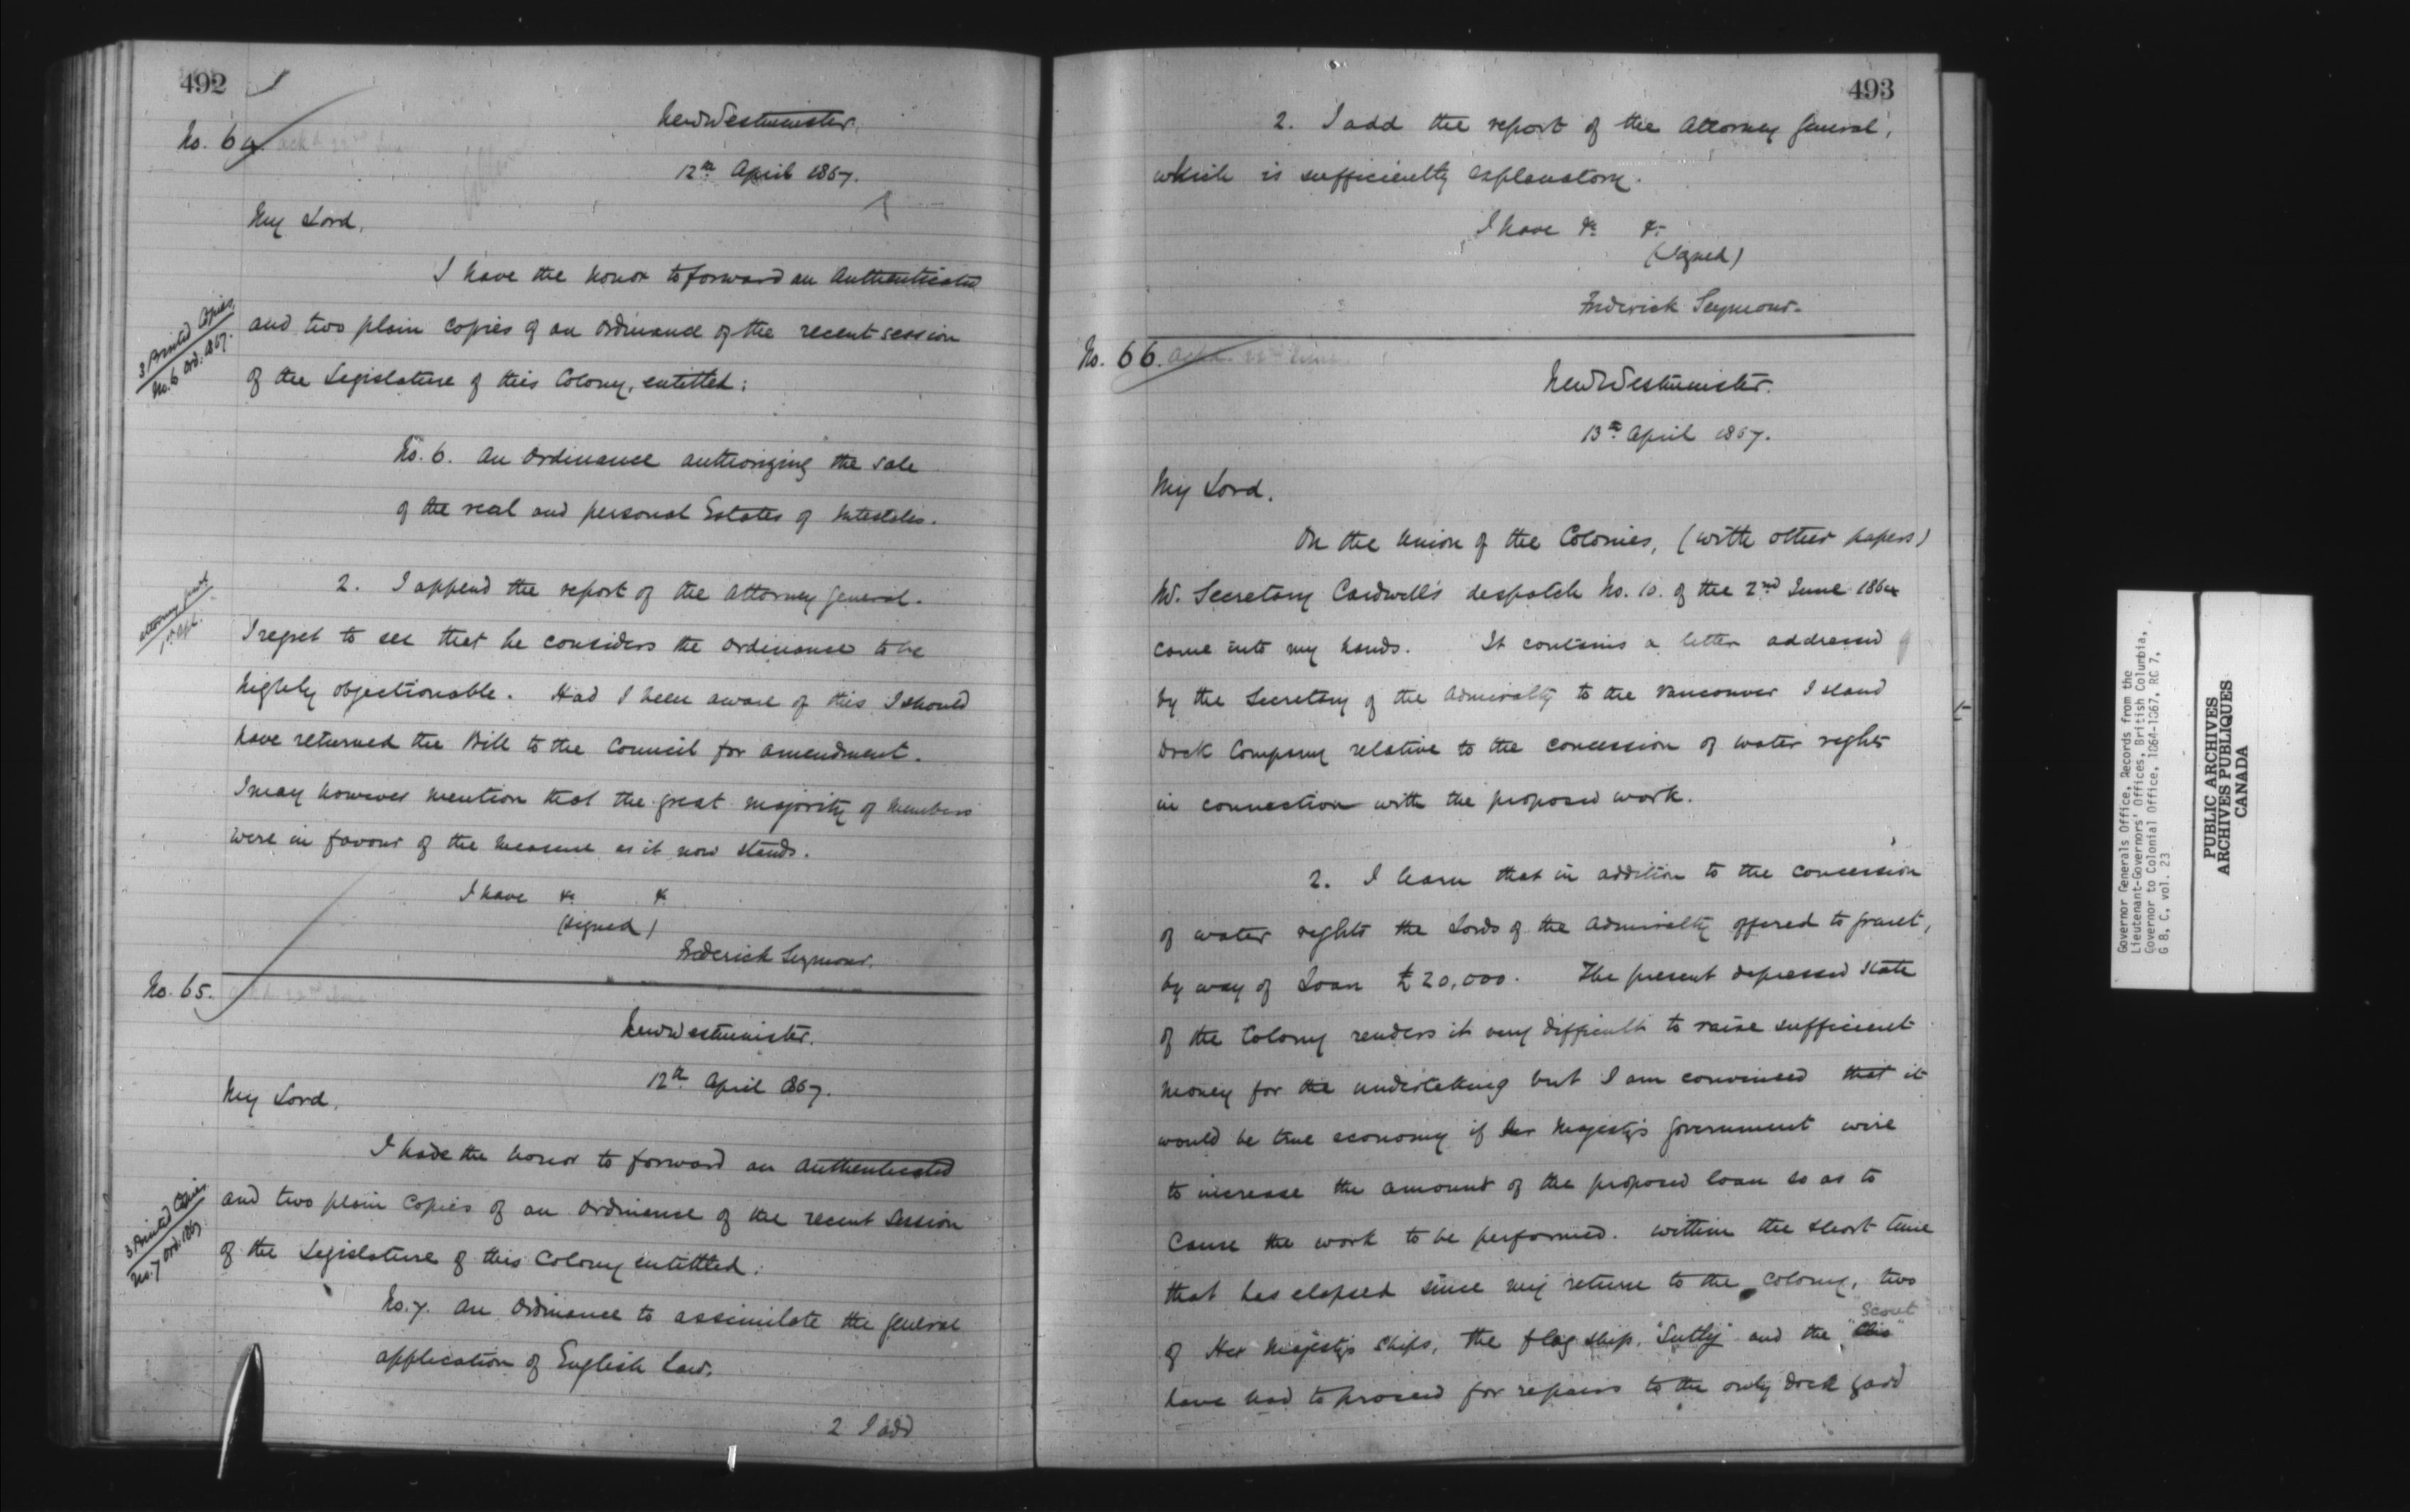 492
No. 64. Ackd 22nd June
New Westminster.
12th April 1867.
My Lord,
I have the honor to forward an Authenticated
and two plain copies of an Ordinance of the recent session
of the Legislature of this Colony, entitled:
3 Printed Copies
No. 6 Ord. 1867.
No. 6. An Ordinance authorizing the sale
of the real and personal Estates of Intestates.
2. I append the report of the Attorney General.
I regret to see that he considers the Ordinance to be
highly objectionable. Had I been aware of this I should
have returned the Bill to the Council for amendment.
I may however mention that the great majority of Members
were in favour of the measure as it now stands.
I have &c. &c.
(signed)
Frederick Seymour.
No. 65. Ackd 22nd June
New Westminster.
12th April 1867.
My Lord,
I have the honor to forward an Authenticated
and two plain Copies of an Ordinance of the recent Session
of the Legislature of this Colony entittled:
3 Printed Copies
No. 7 Ord. 1867.
No. 7. An Ordinance to assimilate the general
application of English Law.
2 I add
493
2. I add the report of the Attorney General,
which is sufficiently explanatory.
I have &c. &c.
(signed)
Frederick Seymour.
No. 66. Ackd. 22nd June
New Westminster.
13th April 1867.
My Lord.
On the Union of the Colonies, (with other papers)
Mr. Secretary Cardwell's despatch No. 10. of the 2nd June 1864
came into my hands. It contains a letter addressed
by the Secretary of the Admiralty to the Vancouver Island
Dock Company relative to the concession of water rights
in connection with the proposed work.
2. I learn that in addition to the concession
of water rights the Lords of the Admiralty offered to grant,
by way of Loan £20,000. The present depressed state
of the Colony renders it very difficult to raise sufficient
money for the undertaking but I am convinced that it
would be true economy if Her Majesty's Government were
to increase the amount of the proposed loan so as to
cause the work to be performed. Within the short time
that has elapsed since my return to the Colony, two
Scout
of Her Majesty's Ships, the flag ship, "Sutlej" and the
have had to proceed for repairs to the only dock yard
Governor Generals Office, Records from the
Lieutenant-Governors' Offices, British Columbia,
Governor to Colonial Office, 1864-1867, RC 7,
G 8, C, vol. 23
PUBLIC ARCHIVES
ARCHIVES PUBLIQUES
CANADA